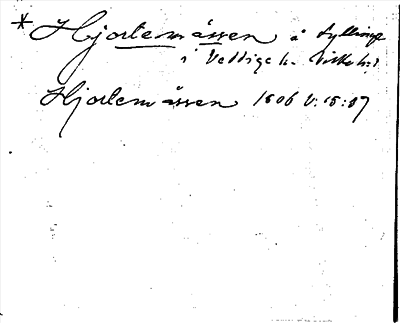 * Hjortemåssen å Syllinge
i Veddige sn. Viske hd
Hjortemåssen 1806 V:18:37